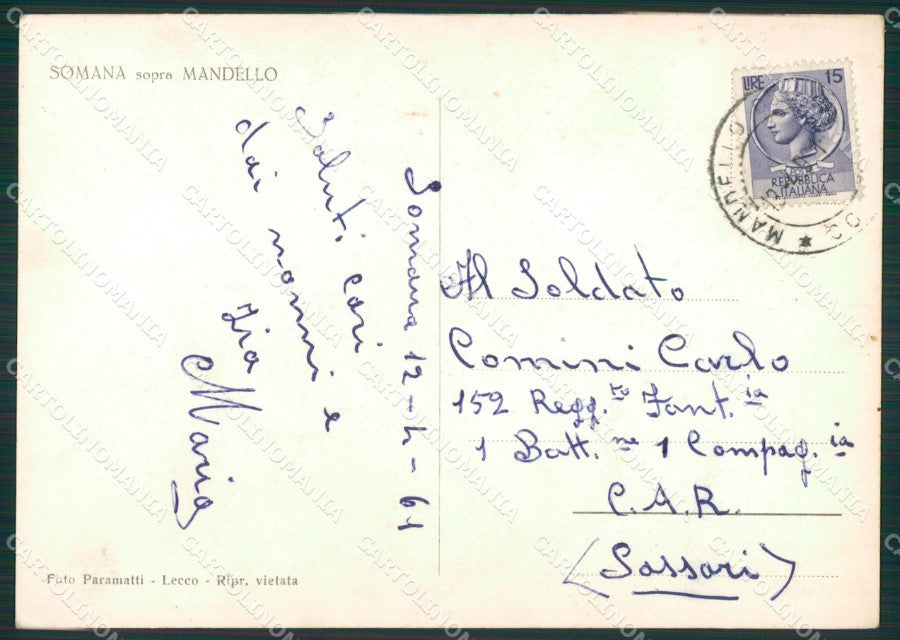 SOMANA sopra MANDELLO
Somana 12-4-61
Saluti cari
dai nonni e
Zia
Maria
Foto Paramatti - Lecco - Ripr. vietata
LIRE 15
REPVBBLICA
ITALIANA
MANDELLO
Al Soldato
Comini Carlo
152 Regg.to Fant.ia
1 Batt.ne 1 Compag.ia
C.A.R.
(Sassari)
CARTOLINOMANIA